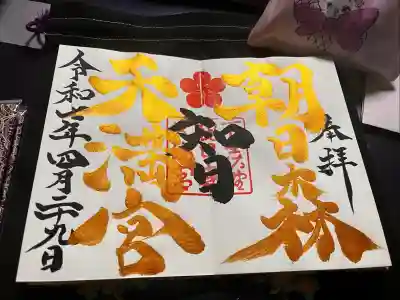 奉拝
朝日森
智
天満宮
令和六年四月二十九日